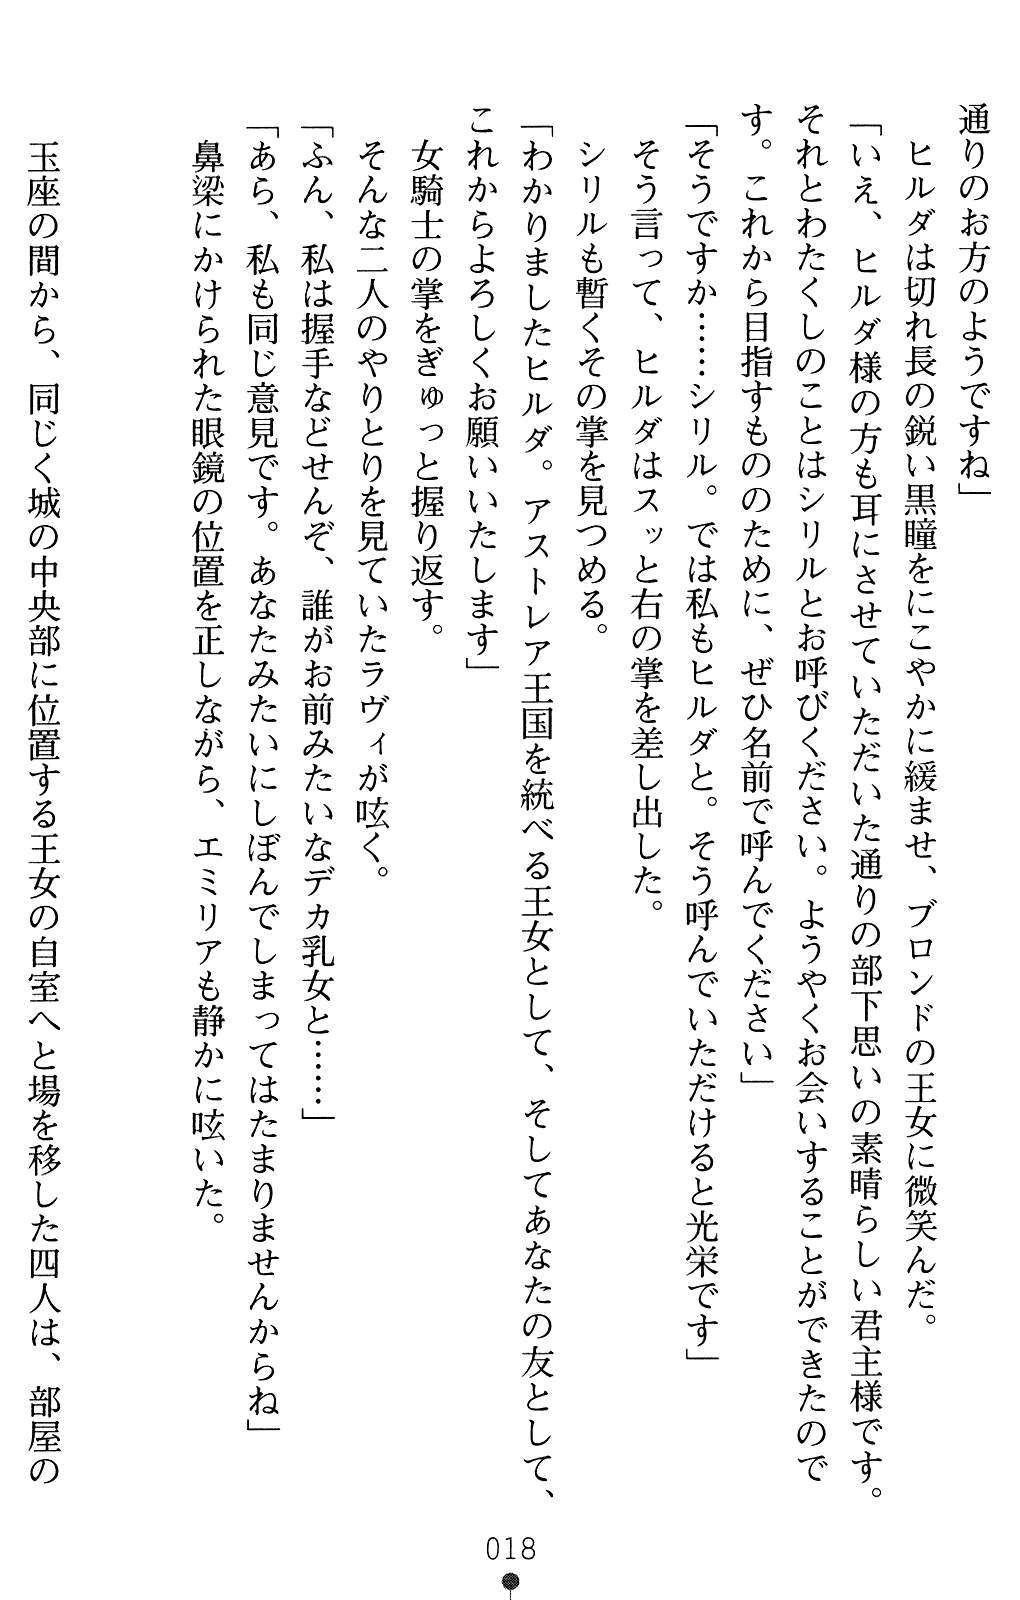 通りのお方のようですね」
　ヒルダは切れ長の鋭い黒瞳をにこやかに緩ませ、ブロンドの王女に微笑んだ。
「いえ、ヒルダ様の方も耳にさせていただいた通りの部下思いの素晴らしい君主様です。
それとわたくしのことはシリルとお呼びください。ようやくお会いすることができたので
す。これから目指すもののために、ぜひ名前で呼んでください」
「そうですか……シリル。では私もヒルダと。そう呼んでいただけると光栄です」
　そう言って、ヒルダはスッと右の掌を差し出した。
　シリルも暫くその掌を見つめる。
「わかりましたヒルダ。アストレア王国を統べる王女として、そしてあなたの友として、
これからよろしくお願いいたします」
　女騎士の掌をぎゅっと握り返す。
　そんな二人のやりとりを見ていたラヴィが呟く。
「ふん、私は握手などせんぞ、誰がお前みたいなデカ乳女と……」
「あら、私も同じ意見です。あなたみたいにしぼんでしまってはたまりませんからね」
　鼻梁にかけられた眼鏡の位置を正しながら、エミリアも静かに呟いた。
　玉座の間から、同じく城の中央部に位置する王女の自室へと場を移した四人は、部屋の
018